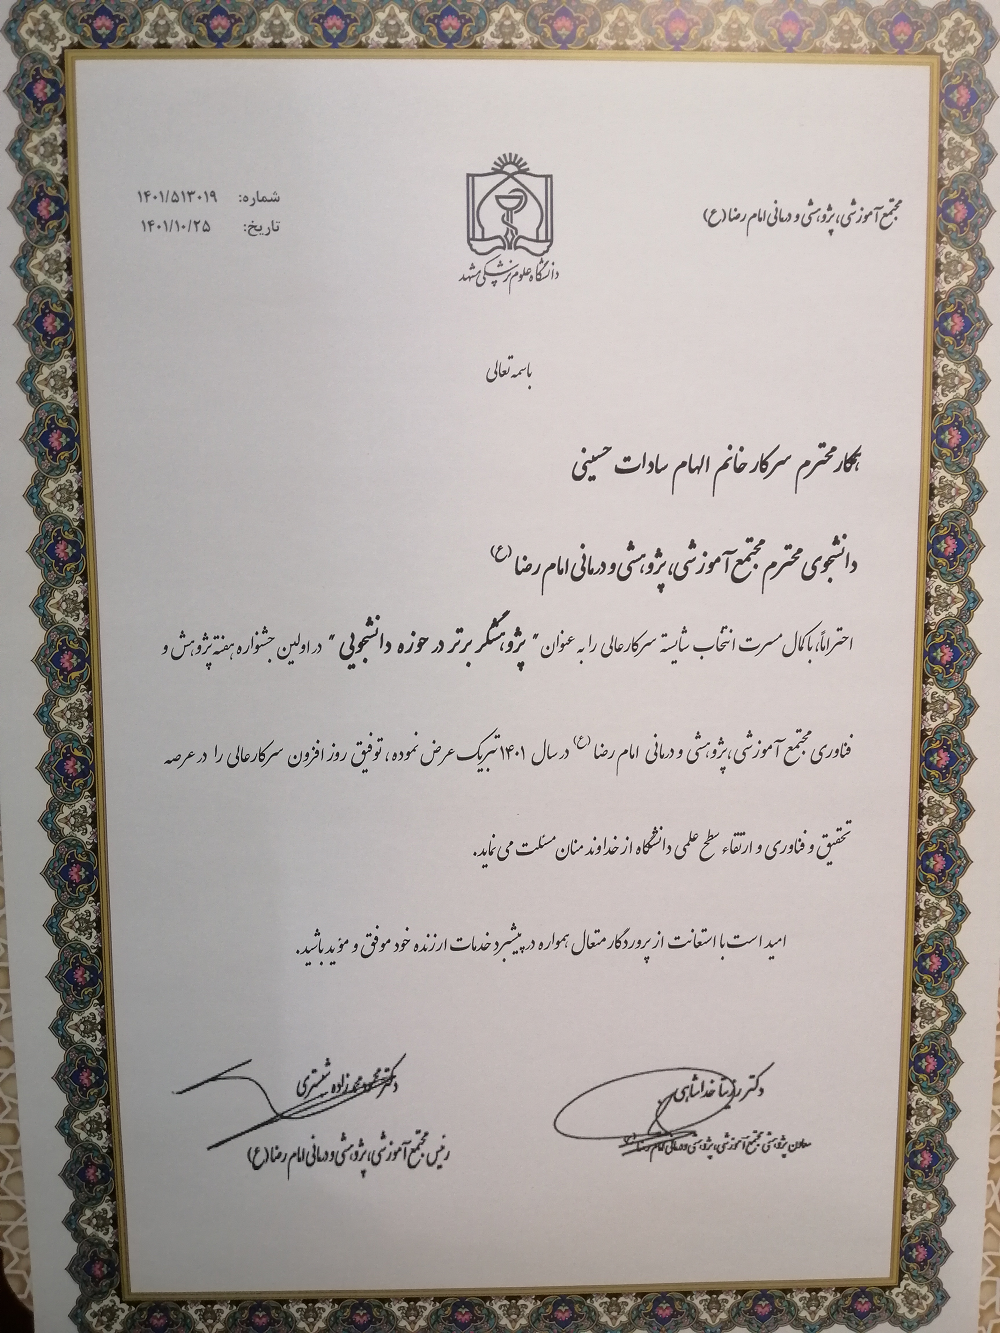 مجتمع آموزشی، پژوهشی و درمانی امام رضا (ع)
شماره: ۱۴۰۱/۵۱۳۰۱۹
تاریخ: ۱۴۰۱/۱۰/۲۵
دانشگاه علوم پزشکی مشهد
باسمه تعالی
همکار محترم سرکار خانم الهام سادات حسینی
دانشجوی محترم مجتمع آموزشی، پژوهشی و درمانی امام رضا (ع)
احتراماً، با کمال مسرت انتخاب شایسته سرکارعالی را به عنوان " پژوهشگر برتر در حوزه دانشجویی " در اولین جشنواره هفته پژوهش و
فناوری مجتمع آموزشی، پژوهشی و درمانی امام رضا (ع) در سال ۱۴۰۱ تبریک عرض نموده، توفیق روز افزون سرکارعالی را در عرصه
تحقیق و فناوری و ارتقاء سطح علمی دانشگاه از خداوند منان مسئلت می نماید.
امید است با استعانت از پروردگار متعال همواره در پیشبرد خدمات ارزنده خود موفق و مؤید باشید.
دکتر رزیتا خداشاهی
معاون پژوهشی مجتمع آموزشی، پژوهشی و درمانی امام رضا (ع)
دکتر محمود محمدزاده شبستری
رئیس مجتمع آموزشی، پژوهشی و درمانی امام رضا (ع)